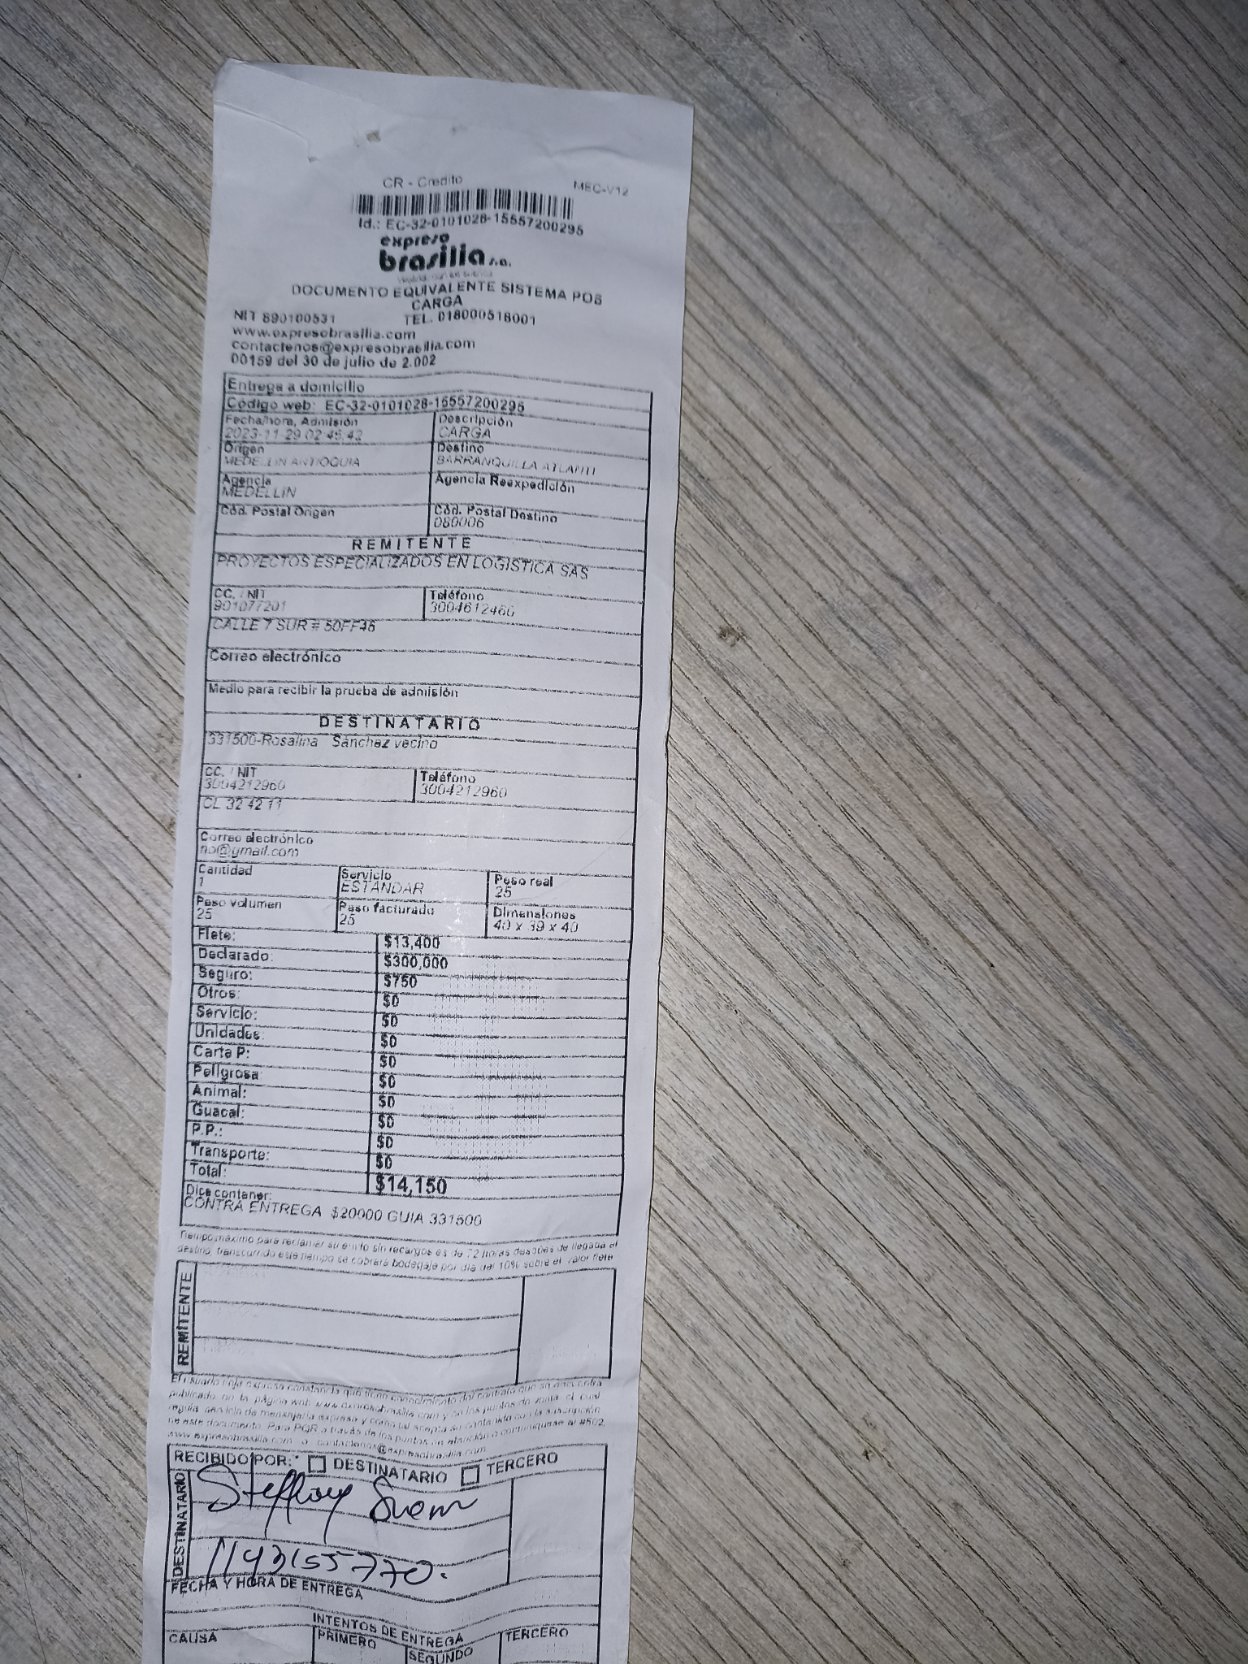 CR - Credito MEC-V12
Id.: EC-32-0101028-15557200295
expreso
brasilia s.a.
DOCUMENTO EQUIVALENTE SISTEMA POS
CARGA
NIT 890100531 TEL. 018000518001
www.expresobrasilia.com
contactenos@expresobrasilia.com
00159 del 30 de julio de 2.002
Entrega a domicilio
Código web: EC-32-0101028-15557200295
Fecha/hora, Admisión Descripción
2023-11-29 02:45:42 CARGA
Origen Destino
MEDELLIN ANTIOQUIA BARRANQUILLA ATLANTI
Agencia Agencia Reexpedición
MEDELLIN
Cód. Postal Origen Cód. Postal Destino
080006
REMITENTE
PROYECTOS ESPECIALIZADOS EN LOGISTICA SAS
CC. / NIT Teléfono
901077201 3004612460
CALLE 7 SUR # 50FF45
Correo electrónico
Medio para recibir la prueba de admisión
DESTINATARIO
331500-Rosalina Sánchez vecino
CC. / NIT Teléfono
3004212960 3004212960
CL 32 42 11
Correo electrónico
no@gmail.com
Cantidad Servicio Peso real
1 ESTANDAR 25
Peso volumen Peso facturado Dimensiones
25 25 40 x 39 x 40
Flete: $13,400
Declarado: $300,000
Seguro: $750
Otros: $0
Servicio: $0
Unidades: $0
Carta P: $0
Peligrosa $0
Animal: $0
Guacal: $0
P.P.: $0
Transporte: $0
Total: $14,150
Dice contener:
CONTRA ENTREGA $20000 GUIA 331500
Tiempo máximo para reclamar su envío sin recargos es de 72 horas después de llegada al
destino, transcurrido este tiempo se cobrará bodegaje por día del 10% sobre el valor flete
REMITENTE
El usuario deja expresa constancia que tiene conocimiento del contrato que se encuentra
publicado en la página web www.expresobrasilia.com y en los puntos de venta, el cual
regula servicio de mensajería expresa y carga
de este documento. Para PQR a través de los puntos de atención o comuníquese al #502,
www.expresobrasilia.com o contactenos@expresobrasilia.com
RECIBIDO POR: DESTINATARIO TERCERO
DESTINATARIO
1143155770.
FECHA Y HORA DE ENTREGA
INTENTOS DE ENTREGA
CAUSA PRIMERO SEGUNDO TERCERO